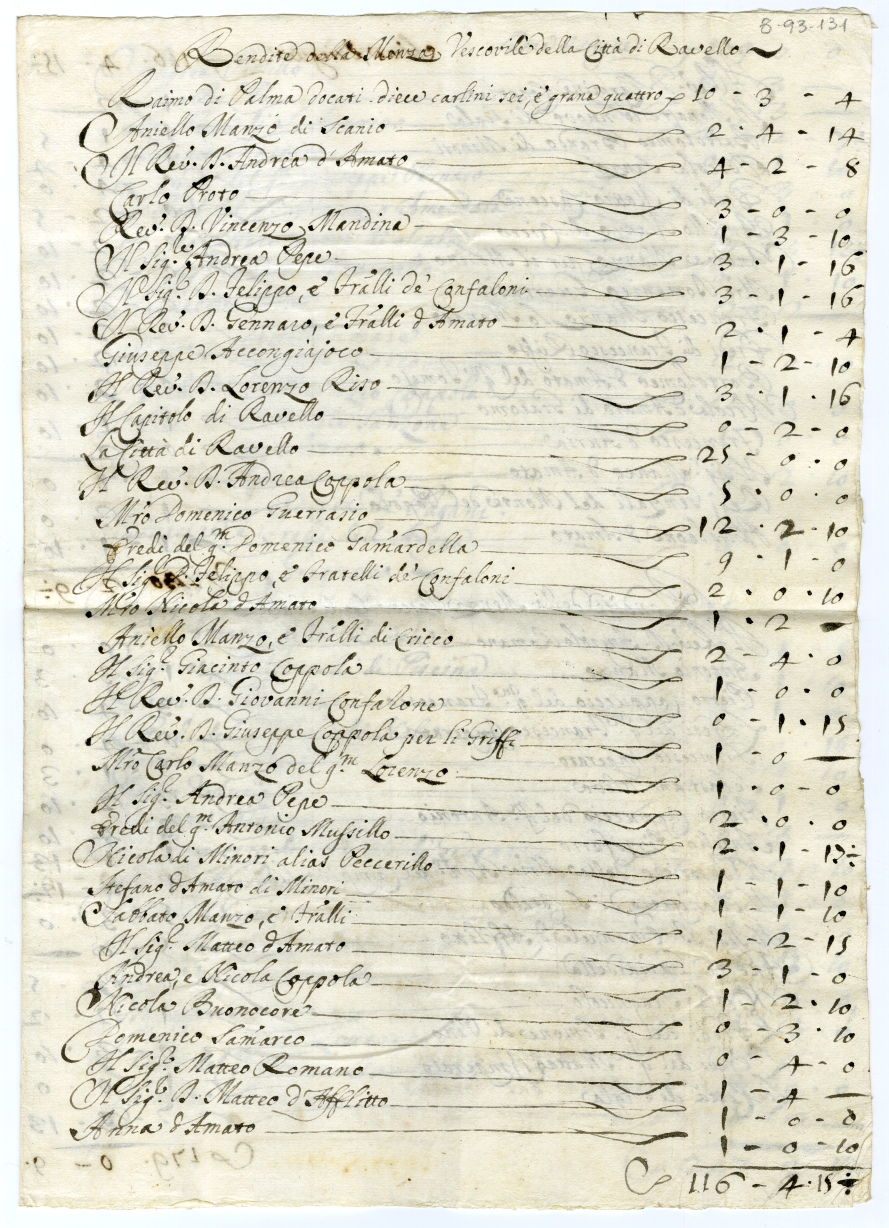 8-93-131
Rendite della Menza Vescovile della Città di Ravello
Raimo di Palma docati diece carlini sei, è grana quattro 10 - 3 - 4
Aniello Manzo di Scanio 2 - 4 - 14
Il Rev. D. Andrea d'Amato 4 - 2 - 8
Carlo Proto 3 - 0 - 0
Rev. D. Vincenzo Mandina 1 - 3 - 10
Il Sig.re Andrea Pepe 3 - 1 - 16
Il Sig.r D. Felippo, è fralli de Confaloni 3 - 1 - 16
Il Rev. D. Gennaro, è fralli d'Amato 2 - 1 - 4
Giuseppe Accongiajoco 1 - 2 - 10
Il Rev. D. Lorenzo Riso 3 - 1 - 16
Il Capitolo di Ravello 0 - 2 - 0
La Città di Ravello 25 - 0 - 0
Il Rev. D. Andrea Coppola 5 - 0 - 0
Mro Domenico Guerrasio 12 - 2 - 10
Eredi del q.m Domenico Gamardella 9 - 1 - 0
Il Sig.r D. Felippo, è fratelli de Confaloni 2 - 0 - 10
Mro Nicola d'Amato 1 - 2 -
Aniello Manzo, è fralli di Cricco 2 - 4 - 0
Il Sig.r Giacinto Coppola 1 - 0 - 0
Il Rev. D. Giovanni Confalone 0 - 1 - 15
Il Rev. D. Giuseppe Coppola per li Griffi 1 - 0 -
Mro Carlo Manzo del q.m Lorenzo 1 - 0 - 0
Il Sig.r Andrea Pepe 2 - 0 - 0
Eredi del q.m Antonio Mussillo 2 - 1 - 13½
Nicola di Minori alias Peccerillo 1 - 1 - 10
Stefano d'Amato di Minori 1 - 1 - 10
Sabbato Manzo, è fralli 1 - 2 - 15
Il Sig.r Matteo d'Amato 3 - 1 - 0
Andrea, e Nicola Coppola 1 - 2 - 10
Nicola Buonocore 0 - 3 - 10
Domenico Samarco 0 - 4 - 0
Il Sig.r Matteo Romano 1 - 4 -
Il Sig.r D. Matteo d'Afflitto 1 - 0 - 0
Anna d'Amato 1 - 0 - 10
116 - 4 - 15½